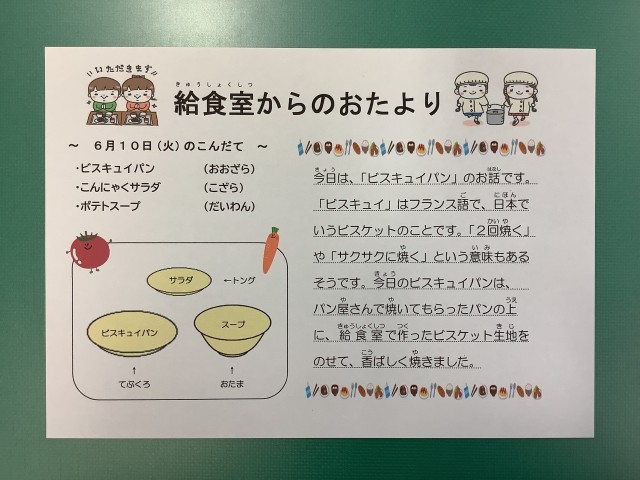 いただきます
給食室からのおたより
きゅうしょくしつ
～ 6月10日（火）のこんだて ～
・ビスキュイパン （おおざら）
・こんにゃくサラダ （こざら）
・ポテトスープ （だいわん）
サラダ ←トング
ビスキュイパン スープ
↑ ↑
てぶくろ おたま
きょう はなし
今日は、「ビスキュイパン」のお話です。
ご にほん
「ビスキュイ」はフランス語で、日本で
かい や
いうビスケットのことです。「２回焼く」
や いみ
や「サクサクに焼く」という意味もある
きょう
そうです。今日のビスキュイパンは、
や や うえ
パン屋さんで焼いてもらったパンの上
きゅうしょくしつ つく きじ
に、給食室で作ったビスケット生地を
こう や
のせて、香ばしく焼きました。